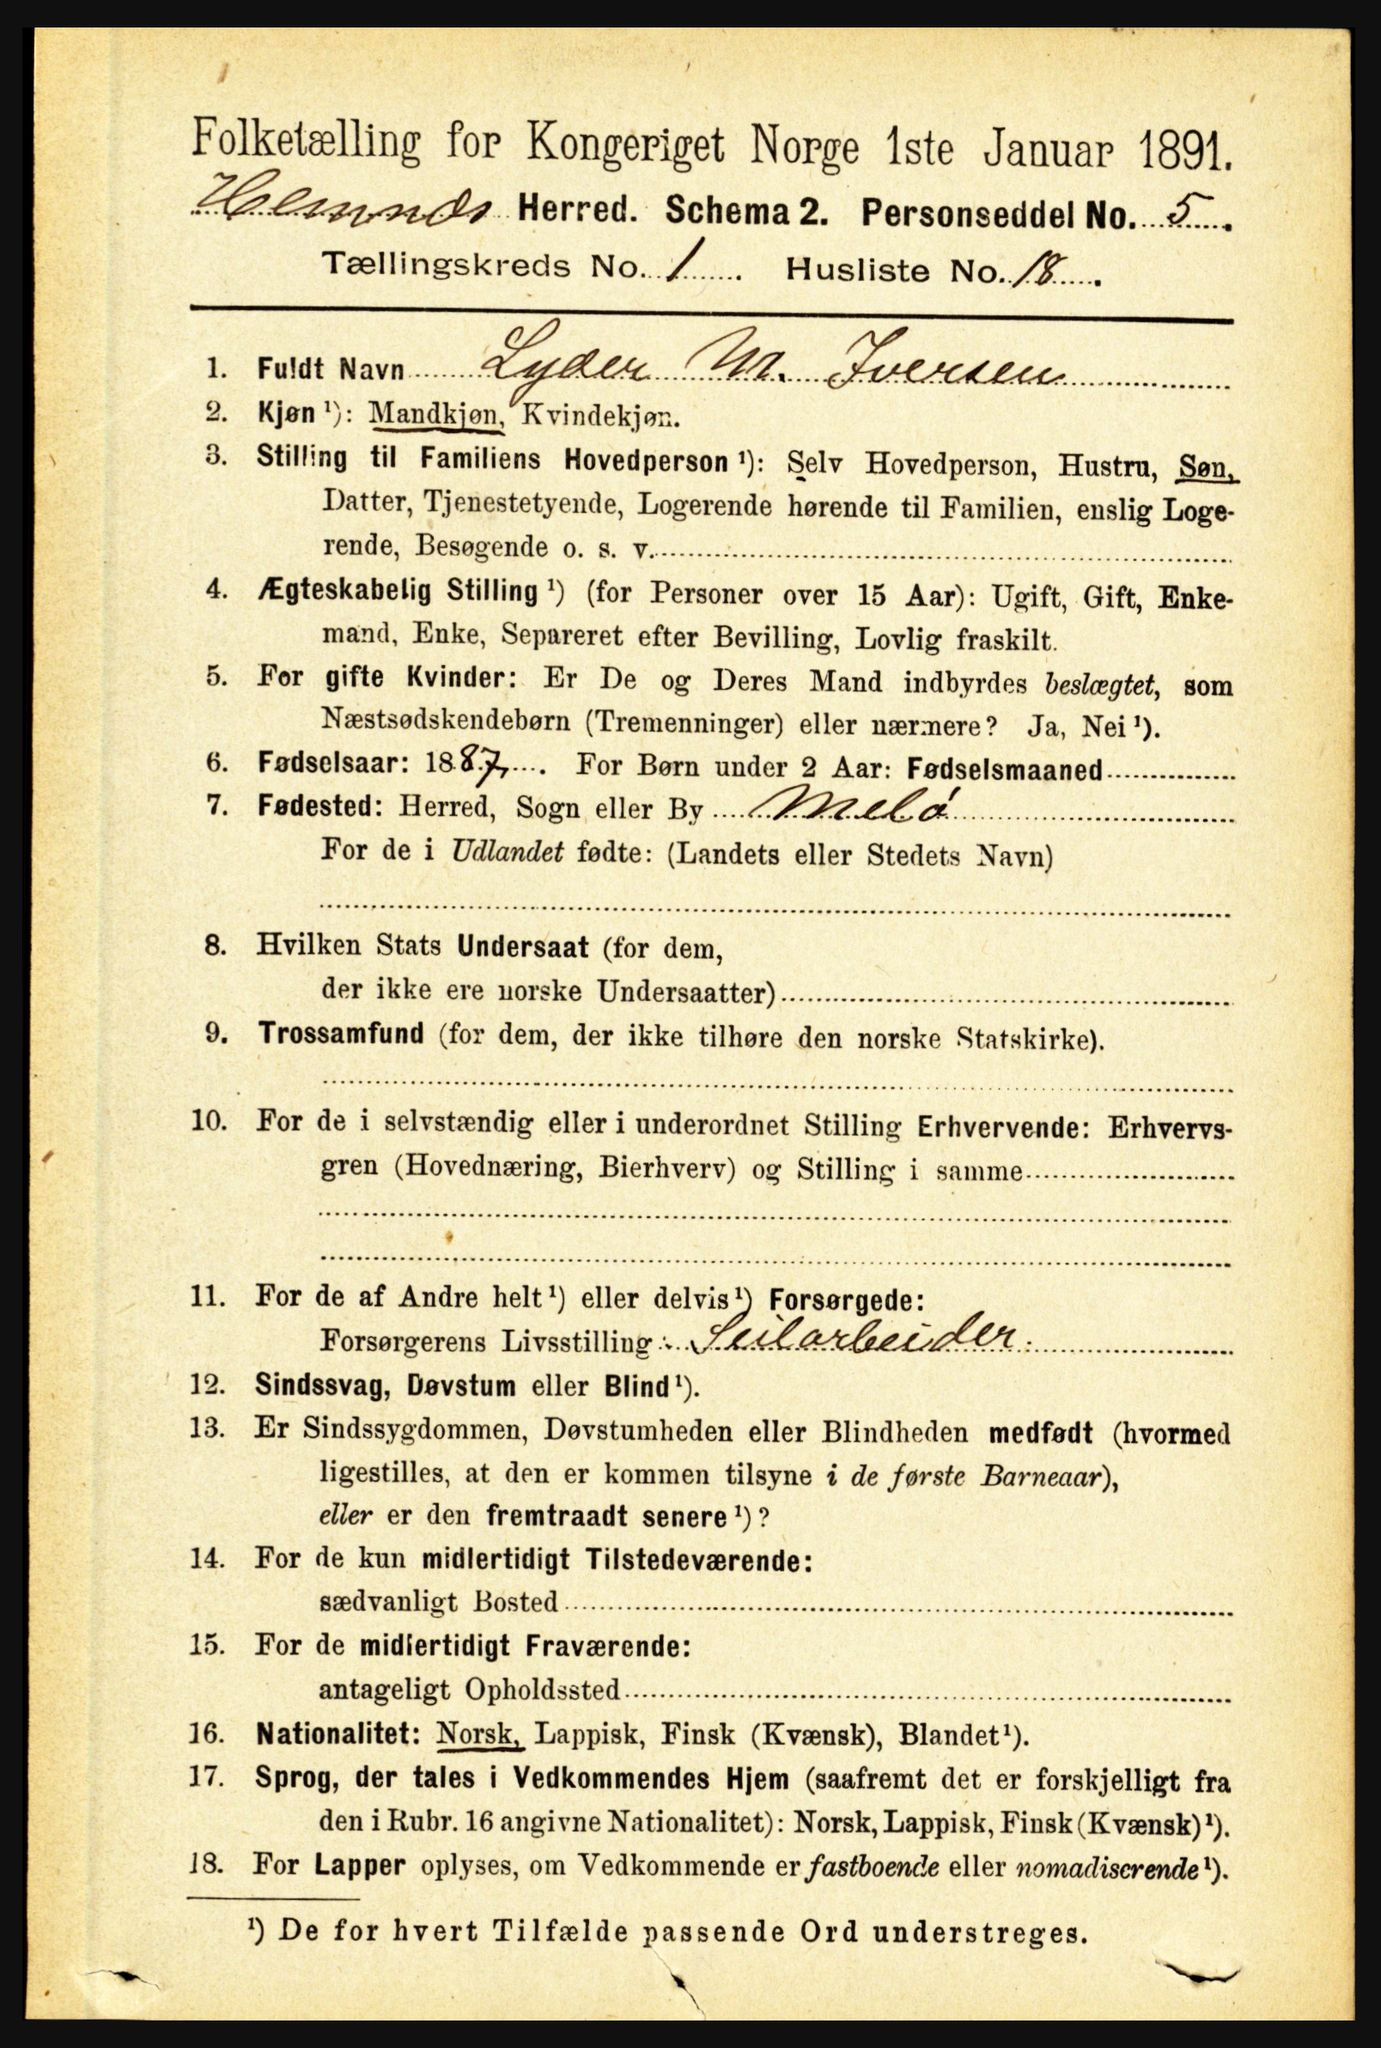 Folketælling for Kongeriget Norge 1ste Januar 1891.
Hemnæs Herred. Schema 2. Personseddel No. 5.
Tællingskreds No. 1. Husliste No. 18.
1. Fuldt Navn Lyder M. Iversen
2. Kjøn ¹): Mandkjøn, Kvindekjøn.
3. Stilling til Familiens Hovedperson ¹): Selv Hovedperson, Hustru, Søn,
Datter, Tjenestetyende, Logerende hørende til Familien, enslig Loge-
rende, Besøgende o. s. v.
4. Ægteskabelig Stilling ¹) (for Personer over 15 Aar): Ugift, Gift, Enke-
mand, Enke, Separeret efter Bevilling, Lovlig fraskilt.
5. For gifte Kvinder: Er De og Deres Mand indbyrdes beslægtet, som
Næstsødskendebørn (Tremenninger) eller nærmere? Ja, Nei ¹).
6. Fødselsaar: 1887. For Børn under 2 Aar: Fødselsmaaned
7. Fødested: Herred, Sogn eller By Melø
For de i Udlandet fødte: (Landets eller Stedets Navn)
8. Hvilken Stats Undersaat (for dem,
der ikke ere norske Undersaatter)
9. Trossamfund (for dem, der ikke tilhøre den norske Statskirke).
10. For de i selvstændig eller i underordnet Stilling Erhvervende: Erhvervs-
gren (Hovednæring, Bierhverv) og Stilling i samme
11. For de af Andre helt ¹) eller delvis ¹) Forsørgede:
Forsørgerens Livsstilling: Seilarbeider.
12. Sindssvag, Døvstum eller Blind ¹).
13. Er Sindssygdommen, Døvstumheden eller Blindheden medfødt (hvormed
ligestilles, at den er kommen tilsyne i de første Barneaar),
eller er den fremtraadt senere ¹)?
14. For de kun midlertidigt Tilstedeværende:
sædvanligt Bosted
15. For de midlertidigt Fraværende:
antageligt Opholdssted
16. Nationalitet: Norsk, Lappisk, Finsk (Kvænsk), Blandet ¹).
17. Sprog, der tales i Vedkommendes Hjem (saafremt det er forskjelligt fra
den i Rubr. 16 angivne Nationalitet): Norsk, Lappisk, Finsk (Kvænsk) ¹).
18. For Lapper oplyses, om Vedkommende er fastboende eller nomadiserende ¹).
¹) De for hvert Tilfælde passende Ord understreges.